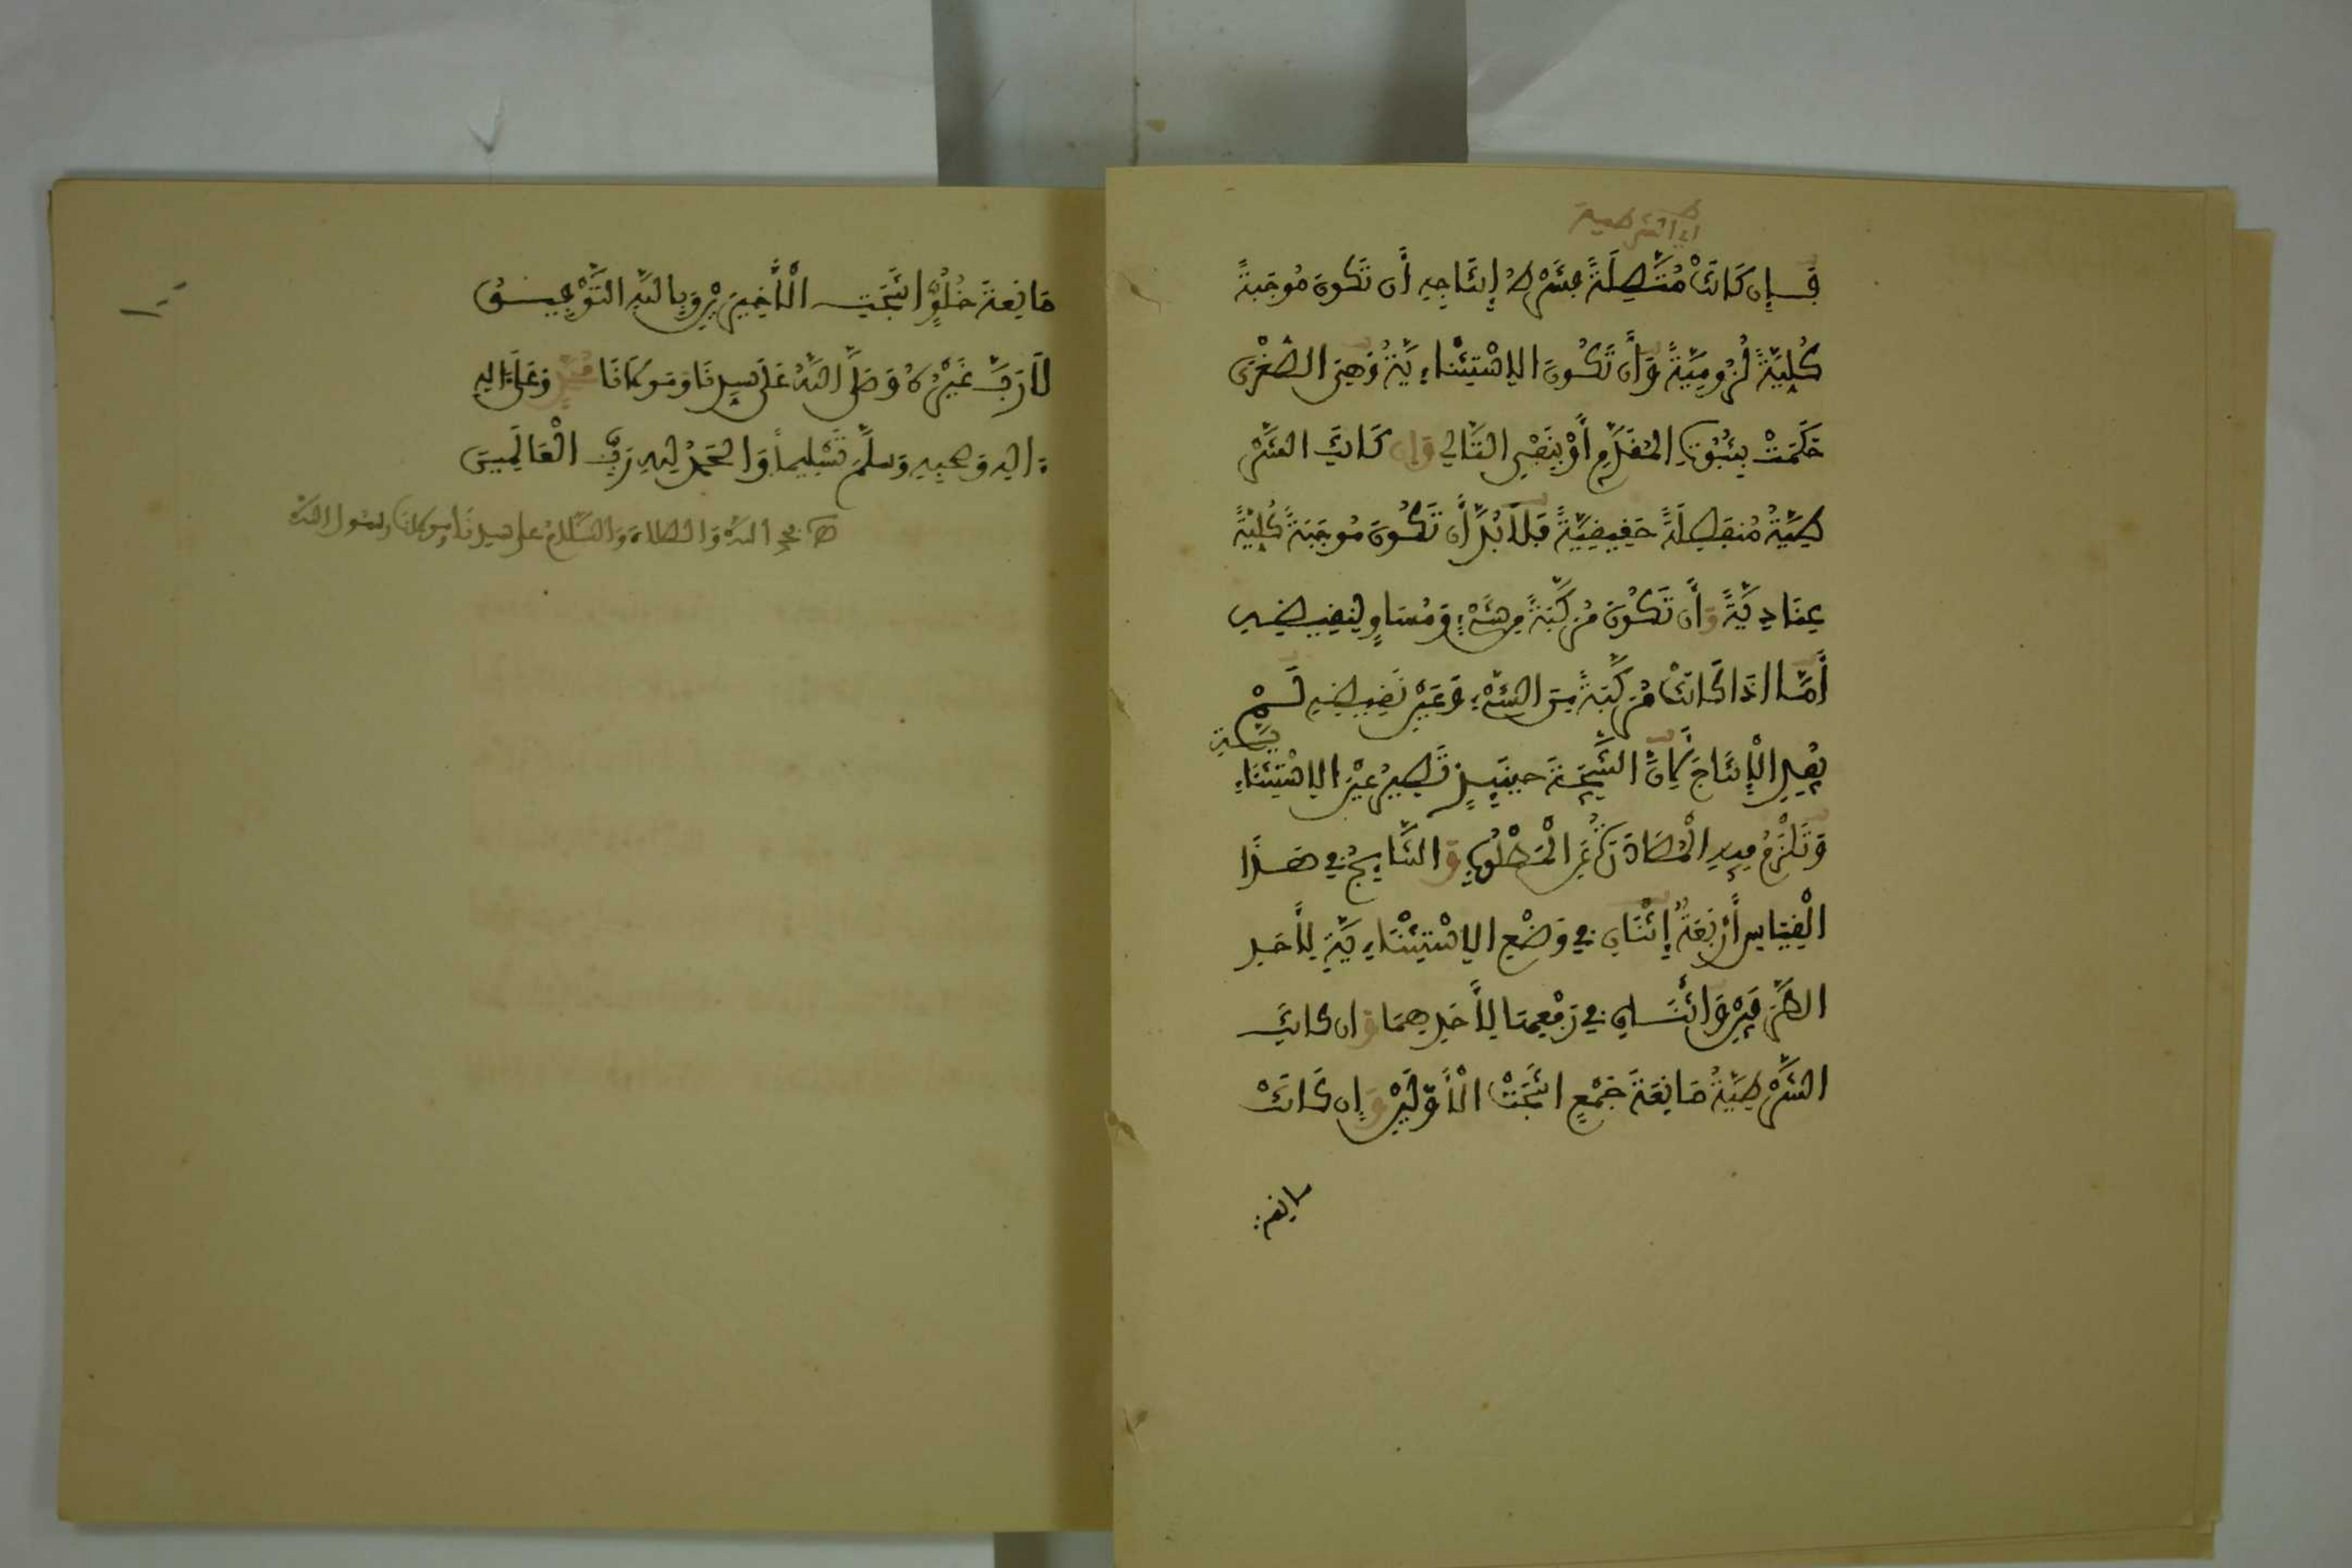 أي الشرطية
فَإِن كَانَتْ مُتَّصِلَةً فَشَرْطُ إِنْتَاجِهِ أَن تَكُونَ مُوجَبَةً
كُلِيَّةً لُزُومِيَّةً وَأَن تَكُونَ الِاسْتِثْنَاءِيَّةُ وَهِيَ الصُّغْرَى
حَكَمَتْ بِثُبُوتِ الْمُقَدَّمِ أَوْ بِنَفْيِ التَّالِي وَإِن كَانَتِ الشَّرْ
طِيَّةُ مُنفَصِلَةً حَقِيقِيَّةً فَلَا بُدَّ أَن تَكُونَ مُوجَبَةً كُلِيَّةً
عِنَادِيَّةً وَأَن تَكُونَ مُرَكَّبَةً مِن شَيْءٍ وَمُسَاوٍ لِنَقِيضِهِ
أَمَّا اذَا كَانَتْ مُرَكَّبَةً مِنَ الشَّيْءِ وَعَيْنِ نَقِيضِهِ لَمْ
يُفِدِ الْإِنْتَاجَ لِأَنَّ النَّتِيجَةَ حِينَئِذٍ تَصِيرُ عَيْنَ الِاسْتِثْنَاءِ
يَّةِ
وَتَلْزَمُ فِيهِ الْمُصَادَرَةُ عَنِ الْمَطْلُوبِ وَالنَّاتِجُ فِي هَذَا
الْقِيَاسِ أَرْبَعَةٌ إِثْنَانِ فِي وَضْعِ الِاسْتِثْنَاءِيَّةِ لِأَحَدِ
الطَّرَفَيْنِ وَاثْنَانِ فِي رَفْعِهَا لِأَحَدِهِمَا وَان كَانَتِ
الشَّرْطِيَّةُ مَانِعَةَ جَمْعٍ انْتَجَتْ الْأَوَّلَيْنِ وَإِن كَانَتْ
مانعة
مَانِعَةَ خُلُوٍّ انْتَجَتِ الْأَخِيرَيْنِ وَبِاللَّهِ التَّوْفِيقُ
لَا رَبَّ غَيْرُهُ وَصَلَّى اللَّهُ عَلَى سَيِّدِنَا وَمَوْلَانَا مُحَمَّدٍ وَعَلَى ءَالِهِ
ءَالِهِ وَصَحْبِهِ وَسَلَّمَ تَسْلِيماً وَالْحَمْدُ لِلَّهِ رَبِّ الْعَالَمِينَ
بحمد الله وَالصلاة وَالسَّلَامُ على سيدنا ومولانا رسول الله